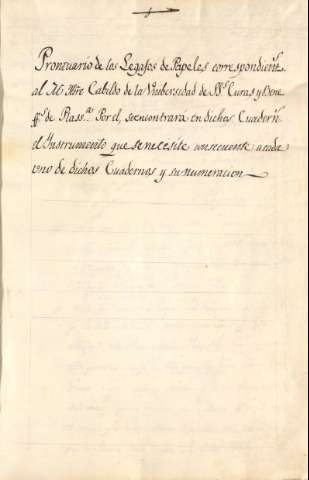 Prontuario de los Legajos de Papeles correspondien.s
al M. Iltre Cabildo de la Vniversidad de S.s Curas, y Bene
ff.s de Plass.a Por el, se encontrará en dichos Cuadern.s
el Instrumento que se necesite consecuente a cada
uno de dichos Cuadernos y su numeracion